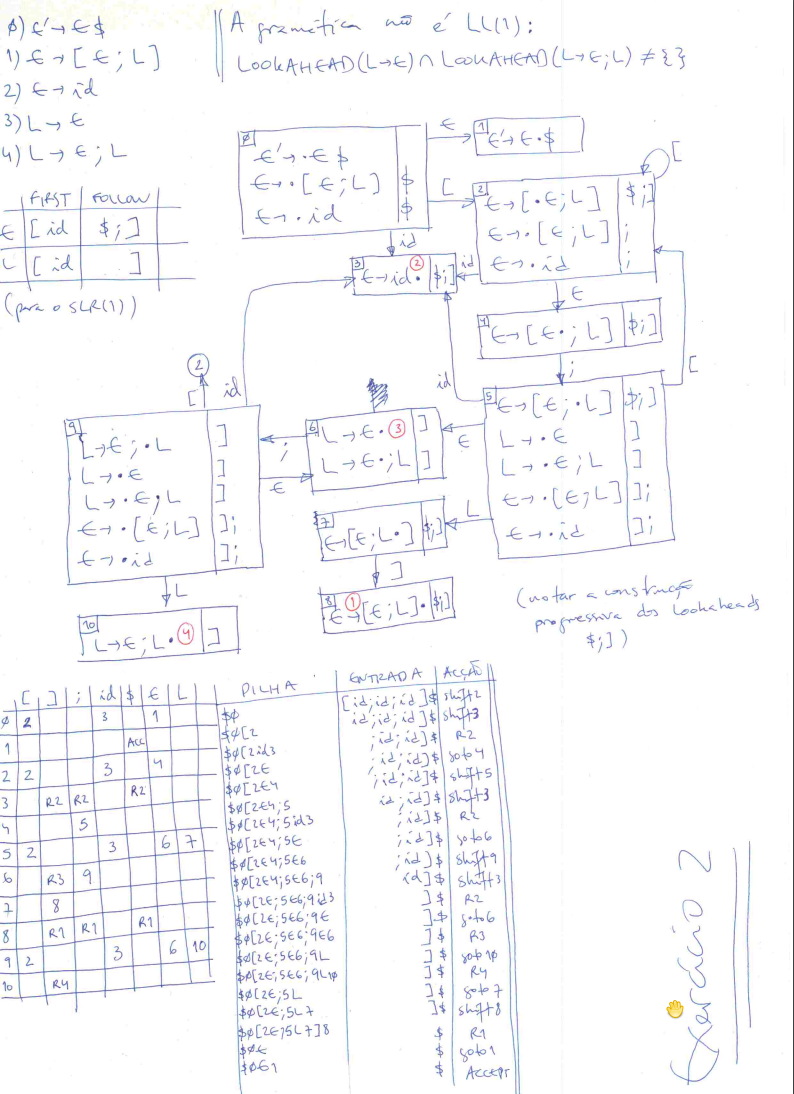 0) E'→E$
1) E→[E;L]
2) E→id
3) L→E
4) L→E;L
A gramática não é LL(1):
LOOKAHEAD(L→E)∩LOOKAHEAD(L→E;L)≠{}
FIRST FOLLOW
E [ id $;]
L [ id ]
(para o SLR(1))
0
E'→·E$
E→·[E;L] $
E→·id $
E
1
E'→E·$
[
2
E→[·E;L] $;]
E→·[E;L] ;
E→·id ;
[
id
3
E→id· ② $;]
id
E
4
E→[E·;L] $;]
;
5
E→[E;·L] $;]
L→·E ]
L→·E;L ]
E→·[E;L] ];
E→·id ];
[
id
E
6
L→E· ③ ]
L→E·;L ]
;
E
9
L→E;·L ]
L→·E ]
L→·E;L ]
E→·[E;L] ];
E→·id ];
②
[
id
L
7
E→[E;L·] $;]
]
8
① E→[E;L]· $;]
L
10
L→E;L· ④ ]
(notar a construção
progressiva dos lookaheads
$;])
[ ] ; id $ E L
0 2 3 1
1 ACC
2 2 3 4
3 R2 R2 R2
4 5
5 2 3 6 7
6 R3 9
7 8
8 R1 R1 R1
9 2 3 6 10
10 R4
PILHA ENTRADA ACÇÃO
$0 [id;id;id]$ shift2
$0[2 id;id;id]$ shift3
$0[2id3 ;id;id]$ R2
$0[2E ;id;id]$ goto4
$0[2E4 ;id;id]$ shift5
$0[2E4;5 id;id]$ shift3
$0[2E4;5id3 ;id]$ R2
$0[2E4;5E ;id]$ goto6
$0[2E4;5E6 ;id]$ shift9
$0[2E4;5E6;9 id]$ shift3
$0[2E;5E6;9id3 ]$ R2
$0[2E;5E6;9E ]$ goto6
$0[2E;5E6;9E6 ]$ R3
$0[2E;5E6;9L ]$ goto10
$0[2E;5E6;9L10 ]$ R4
$0[2E;5L ]$ goto7
$0[2E;5L7 ]$ shift8
$0[2E;5L7]8 $ R1
$0E $ goto1
$0E1 $ ACCEPT
Exercício 2